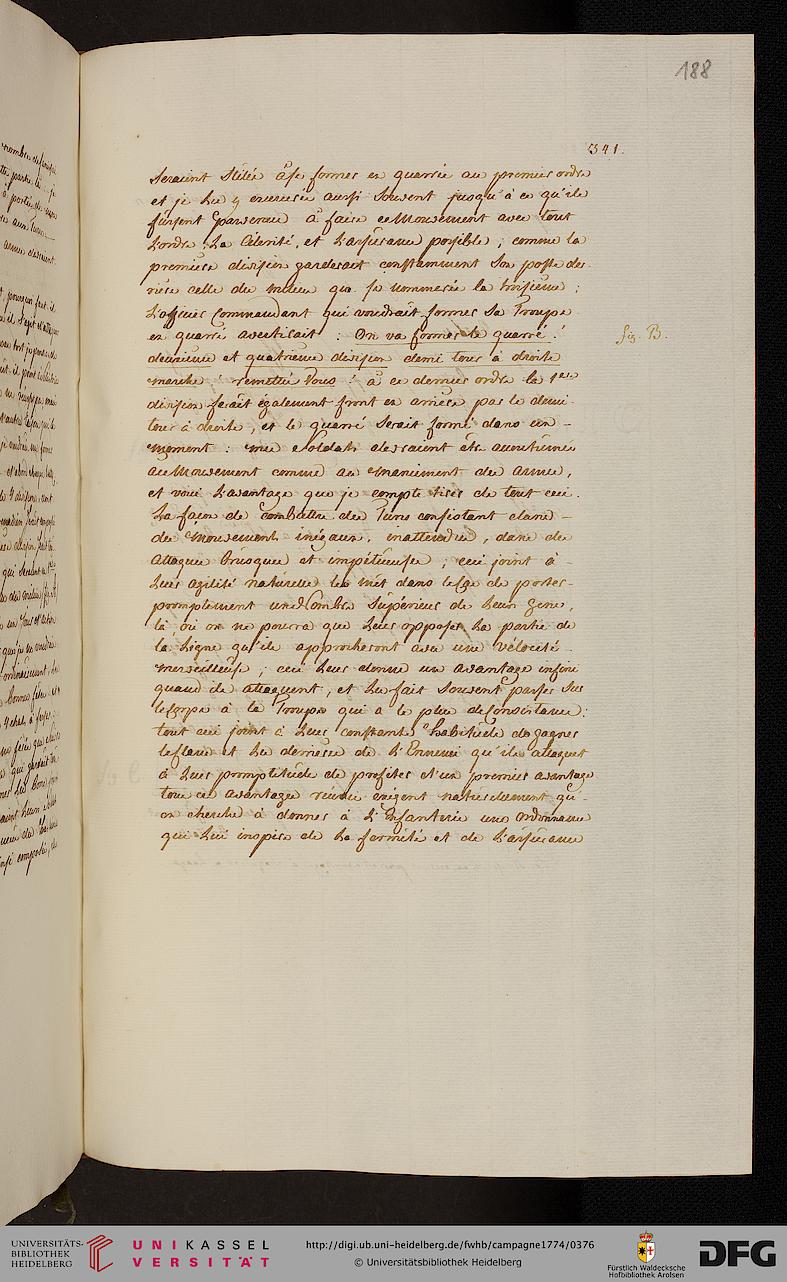 188
341.
Seraient Stilés à se former en quarrée au premier ordre
et je les y exercerée aussi Souvent jusqu'à ce qu'ils
fussent parvenus à faire ce Mouvement avec tout
L'ordre, La Célerité, et L'assurance possible ; comme la
premiere division garderait constamment Son poste der-
riere celle du milieu que je nommerée la troisieme ;
L'officier Commandant qui voudrait former Sa Troupe
en quarré avertirait : On va former le quarré !
fig. B.
deuxieme et quatrieme division demi tour à droite
marche ! remettés Vous ! à ce dernier ordre la 1ere
division ferait egalement front en arriere par le demi-
tour à droite, et le quarré Serait formé dans un -
moment : mes Soldats devraient être accoutumés
à ce Mouvement comme au maniement des armes,
et voici L'avantage que je compte tirer de tout ceci.
La façon de Combattre des Turcs consistant dans -
des Mouvements inégaux, inattendus, dans des
Attaques brusques et impétueuses ; ceci joint à -
Leur agilité naturelle les met dans le Cas de porter
promptement un Nombre Supérieur de Leurs gens,
là, où on ne pourra que Leur opposer La partie de
la Ligne qu'ils approcheront avec une Vélocité -
merveilleuse ; ceci Leur donne un avantage infini
quand ils attaquent, et Les fait Souvent passer Sur
le Corps à la Troupe qui a le plus de Consistance :
tout ceci joint à Leur constante habitude de gagner
les flancs et Les derrieres de L'Ennemi qu'ils attaquent
à Leur promptitude de profiter d'un premier avantage
tous ces avantages réunis exigent naturellement qu'-
on cherche à donner à L'Infanterie une Ordonnance
qui Lui inspire de La fermeté et de L'assurance
UNIVERSITÄTS-
BIBLIOTHEK
HEIDELBERG
UNIKASSEL
VERSITÄT
http://digi.ub.uni-heidelberg.de/fwhb/campagne1774/0376
© Universitätsbibliothek Heidelberg
Fürstlich Waldecksche
Hofbibliothek Arolsen
DFG